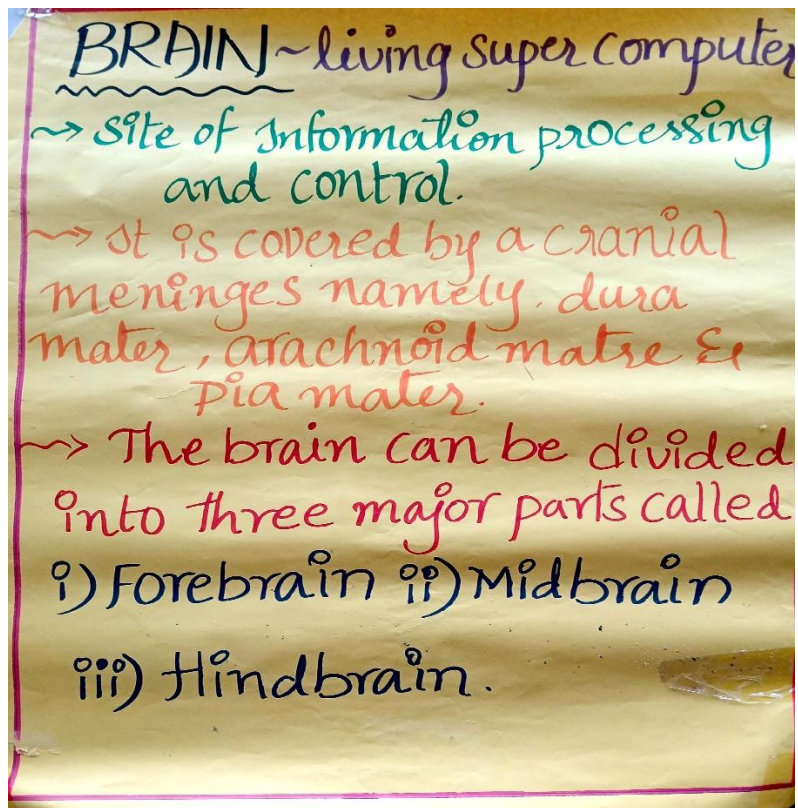 BRAIN ~ living super computer
~> Site of Information processing
and control.
~> It is covered by a cranial
meninges namely, dura
mater, arachnoid matre &
pia mater.
~> The brain can be divided
into three major parts called
i) Forebrain ii) Midbrain
iii) Hindbrain.